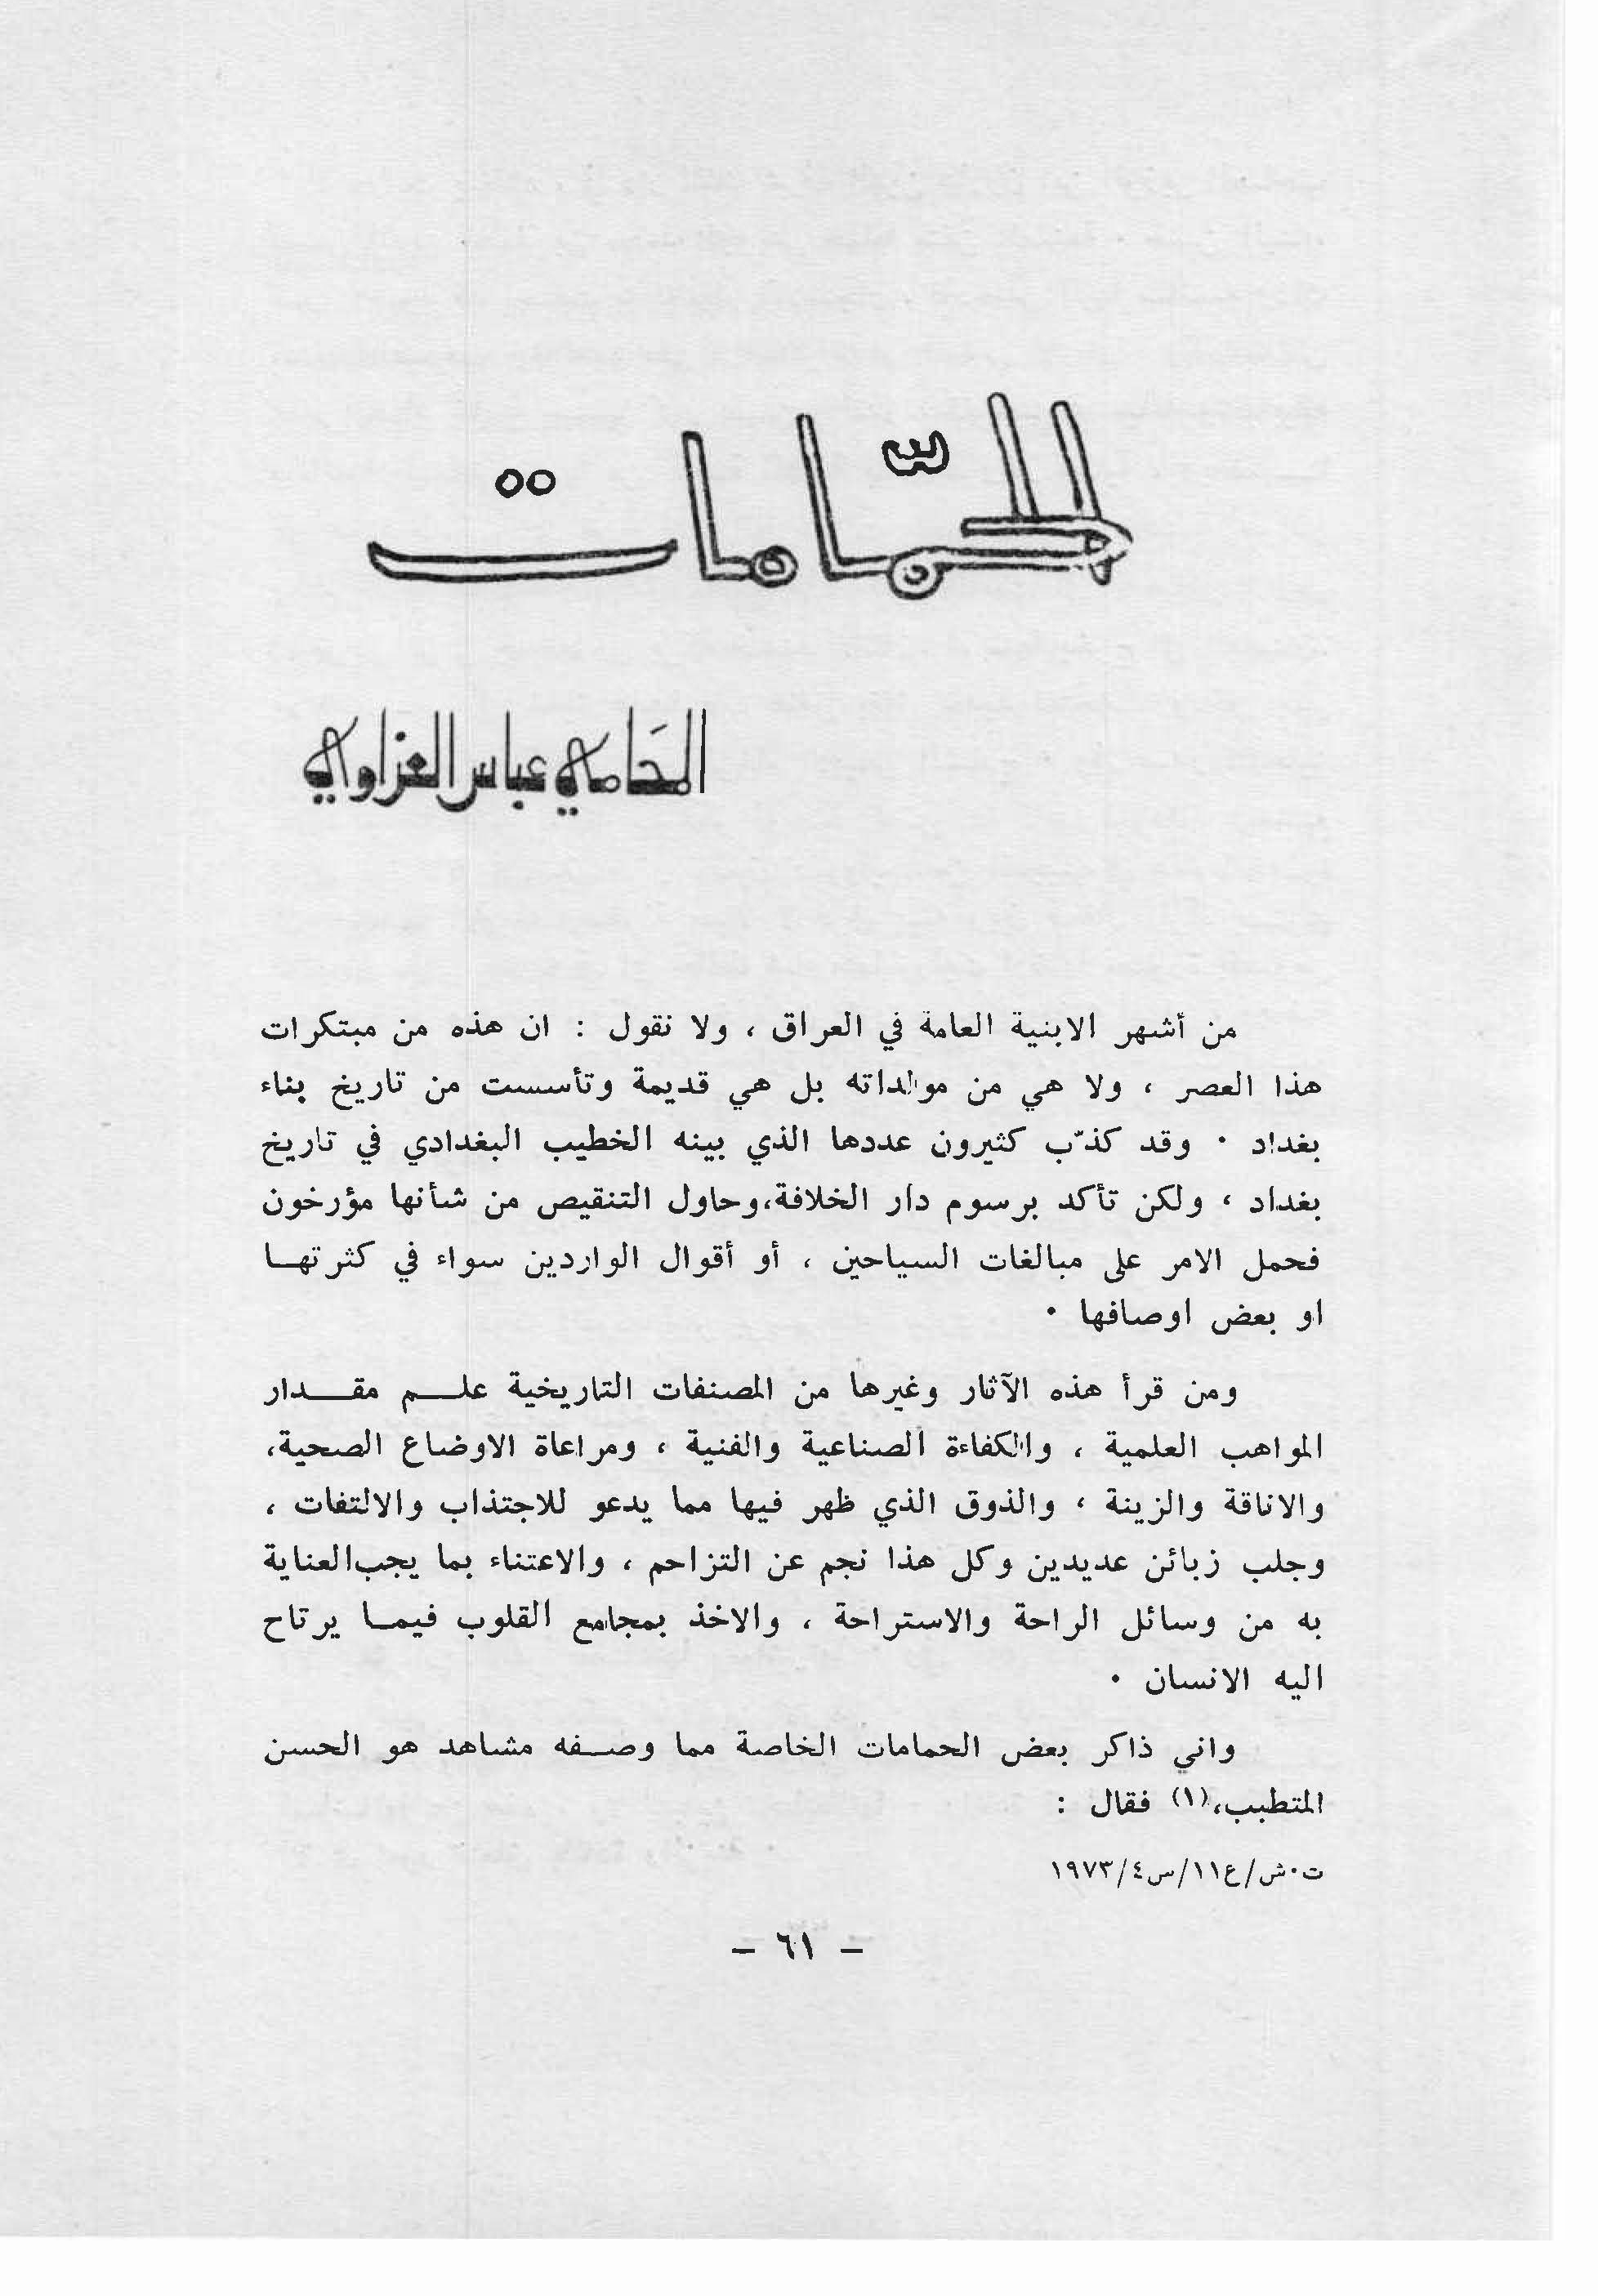 الحمّامات
المحَامي عباس العزاوي
من أشهر الابنية العامة في العراق ، ولا نقول : ان هذه من مبتكرات
هذا العصر ، ولا هي من موالداته بل هي قديمة وتأسست من تاريخ بناء
بغداد ٠ وقد كذّب كثيرون عددها الذي بينه الخطيب البغدادي في تاريخ
بغداد ، ولكن تأكد برسوم دار الخلافة،وحاول التنقيص من شأنها مؤرخون
فحمل الامر على مبالغات السياحين ، أو أقوال الواردين سواء في كثرتهــا
او بعض اوصافها ٠
ومن قرأ هذه الآثار وغيرها من المصنفات التاريخية علــــم مقــــدار
المواهب العلمية ، والكفاءة الصناعية والفنية ، ومراعاة الاوضاع الصحية،
والاناقة والزينة ، والذوق الذي ظهر فيها مما يدعو للاجتذاب والالتفات ،
وجلب زبائن عديدين وكل هذا نجم عن التزاحم ، والاعتناء بما يجب العناية
به من وسائل الراحة والاستراحة ، والاخذ بمجامع القلوب فيمــا يرتاح
اليه الانسان ٠
واني ذاكر بعض الحمامات الخاصة مما وصــفه مشاهد هو الحسن
المتطبب،(١) فقال :
ت٠ش/ع١١/س٤/١٩٧٣
– ٦١ –